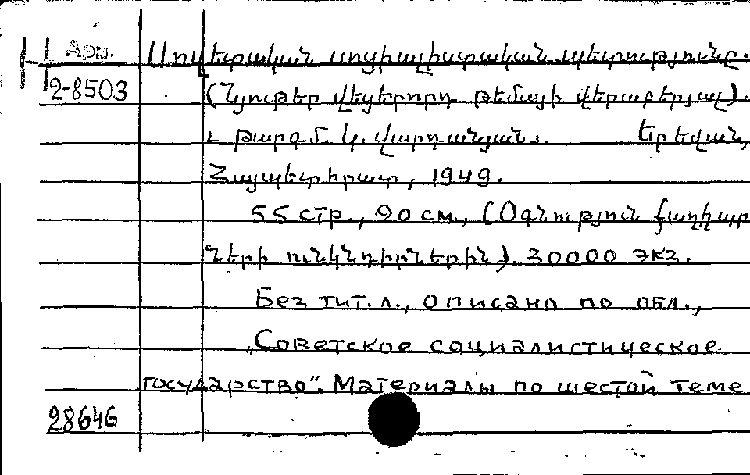 Арм. Սովետական սոցիալիստական պետությունը.
2-8503 (Նյութեր վեցերորդ թեմայի վերաբերյալ).
թարգմ. Կ. Վարդանյան. Երևան,
Հայպետհրատ, 1949.
55 стр., 20 см., (Օգնություն քաղկար
ների ունկնդիրներին). 30000 экз.
Без тит. л., описано по обл.,
„Советское социалистическое
государство". Материалы по шестой теме
28646